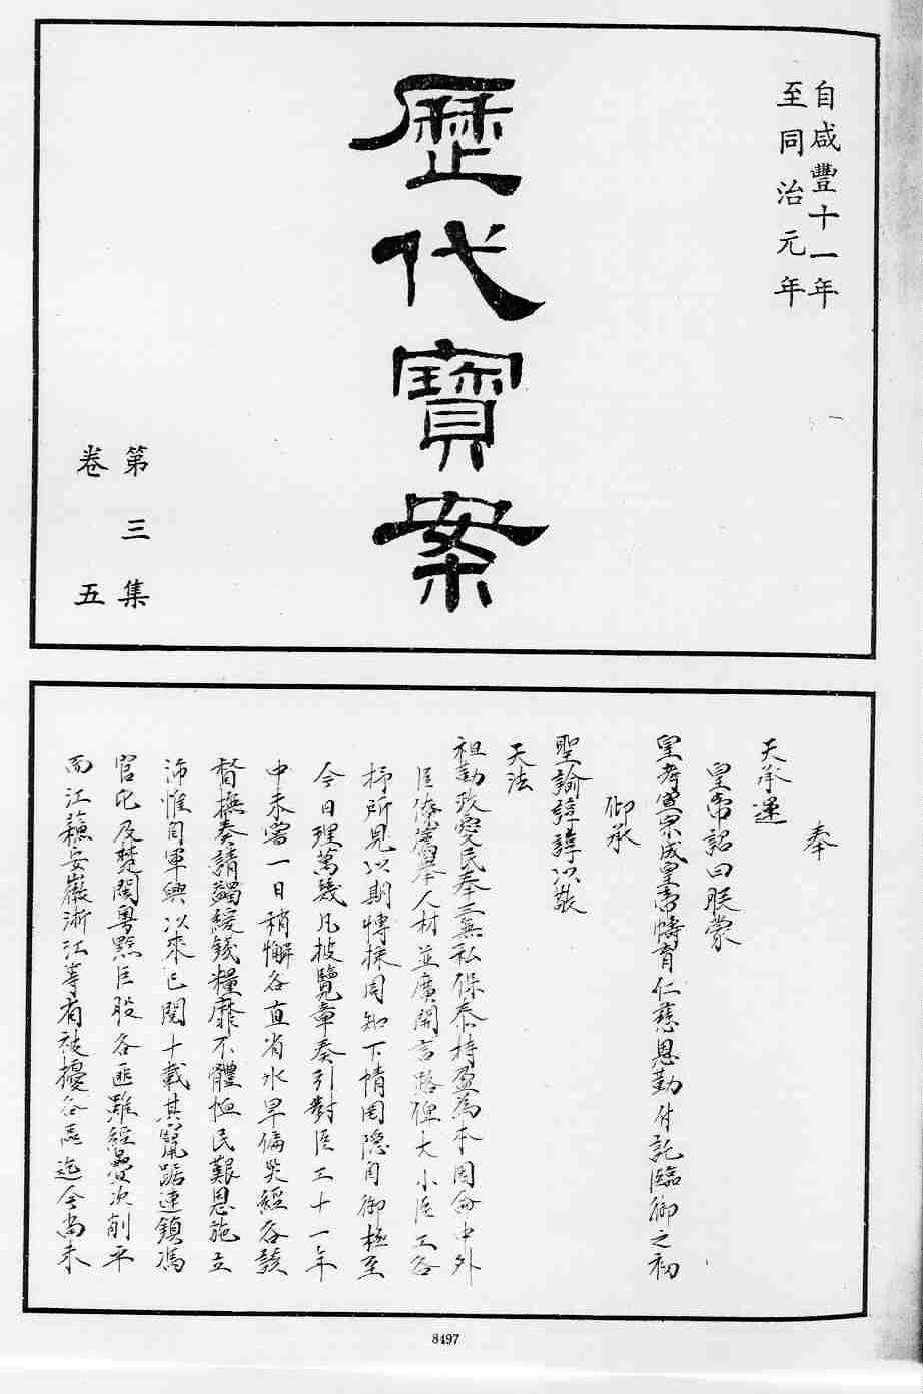 自咸豐十一年
至同治元年
歷代寶案
第三集
卷五
奉
天承運
皇帝詔曰朕蒙
皇考宣宗成皇帝幬育仁慈恩勤付託臨御之初
仰承
聖諭諄諄以敬
天法
祖勤政愛民奉三無私保泰持盈為本因命中外
臣僚薦舉人材並廣開言路俾大小臣工各
抒所見以期博採周知下情罔隱自御極至
今日理萬幾凡披覽章奏引對臣工十一年
中未嘗一日稍懈各直省水旱偏災經各該
督撫奏請蠲緩錢糧靡不體恤民艱恩施立
沛惟自軍興以來已閱十載其竄踞連鎮馮
官屯及楚閩粵黔巨股各匪雖經疊次削平
而江蘇安徽浙江等省被擾各區迄今尚未
8497